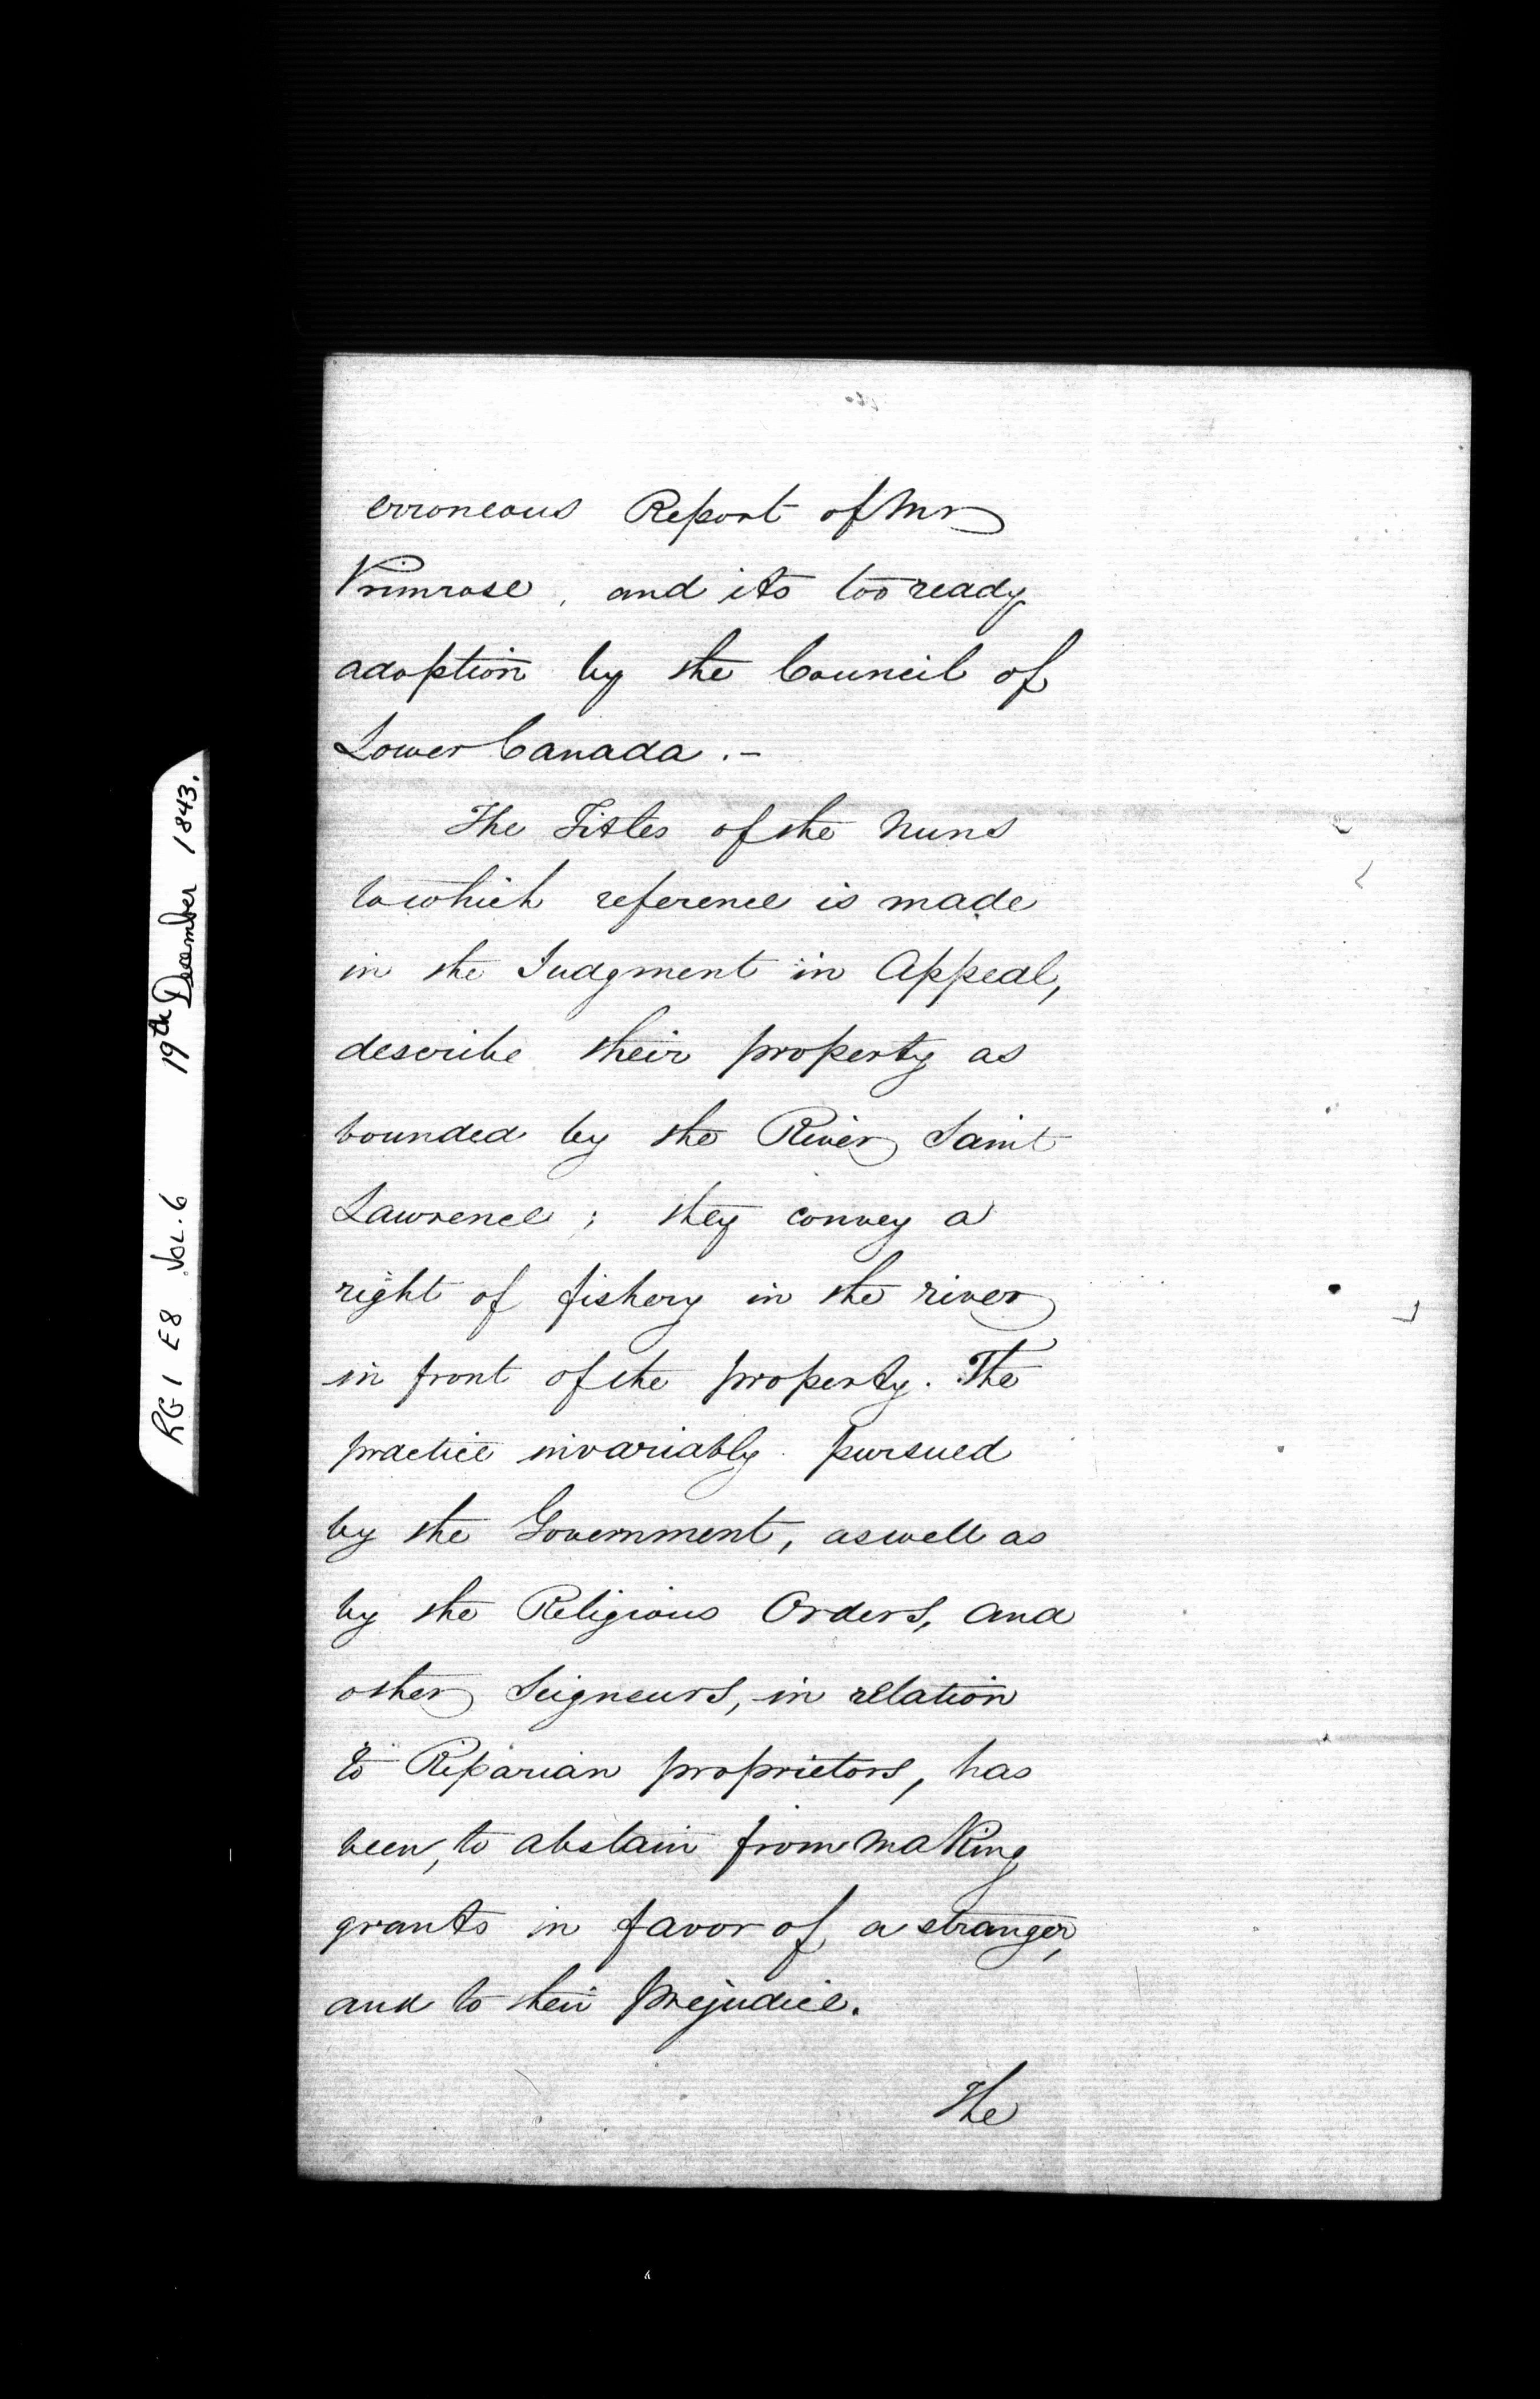 erroneous Report of Mr
Primrose, and its too ready
adoption by the Council of
Lower Canada.-
The Titles of the Nuns
to which reference is made
in the Judgment in Appeal,
describe their property as
bounded by the River Saint
Lawrence; they convey a
right of fishery in the river
in front of the property. The
practice invariably pursued
by the Government, as well as
by the Religious Orders, and
other Seigneurs, in relation
to Riparian proprietors, has
been, to abstain from making
grants in favor of a stranger,
and to their prejudice.
The
RG 1 E8 Vol. 6 19th December 1843.